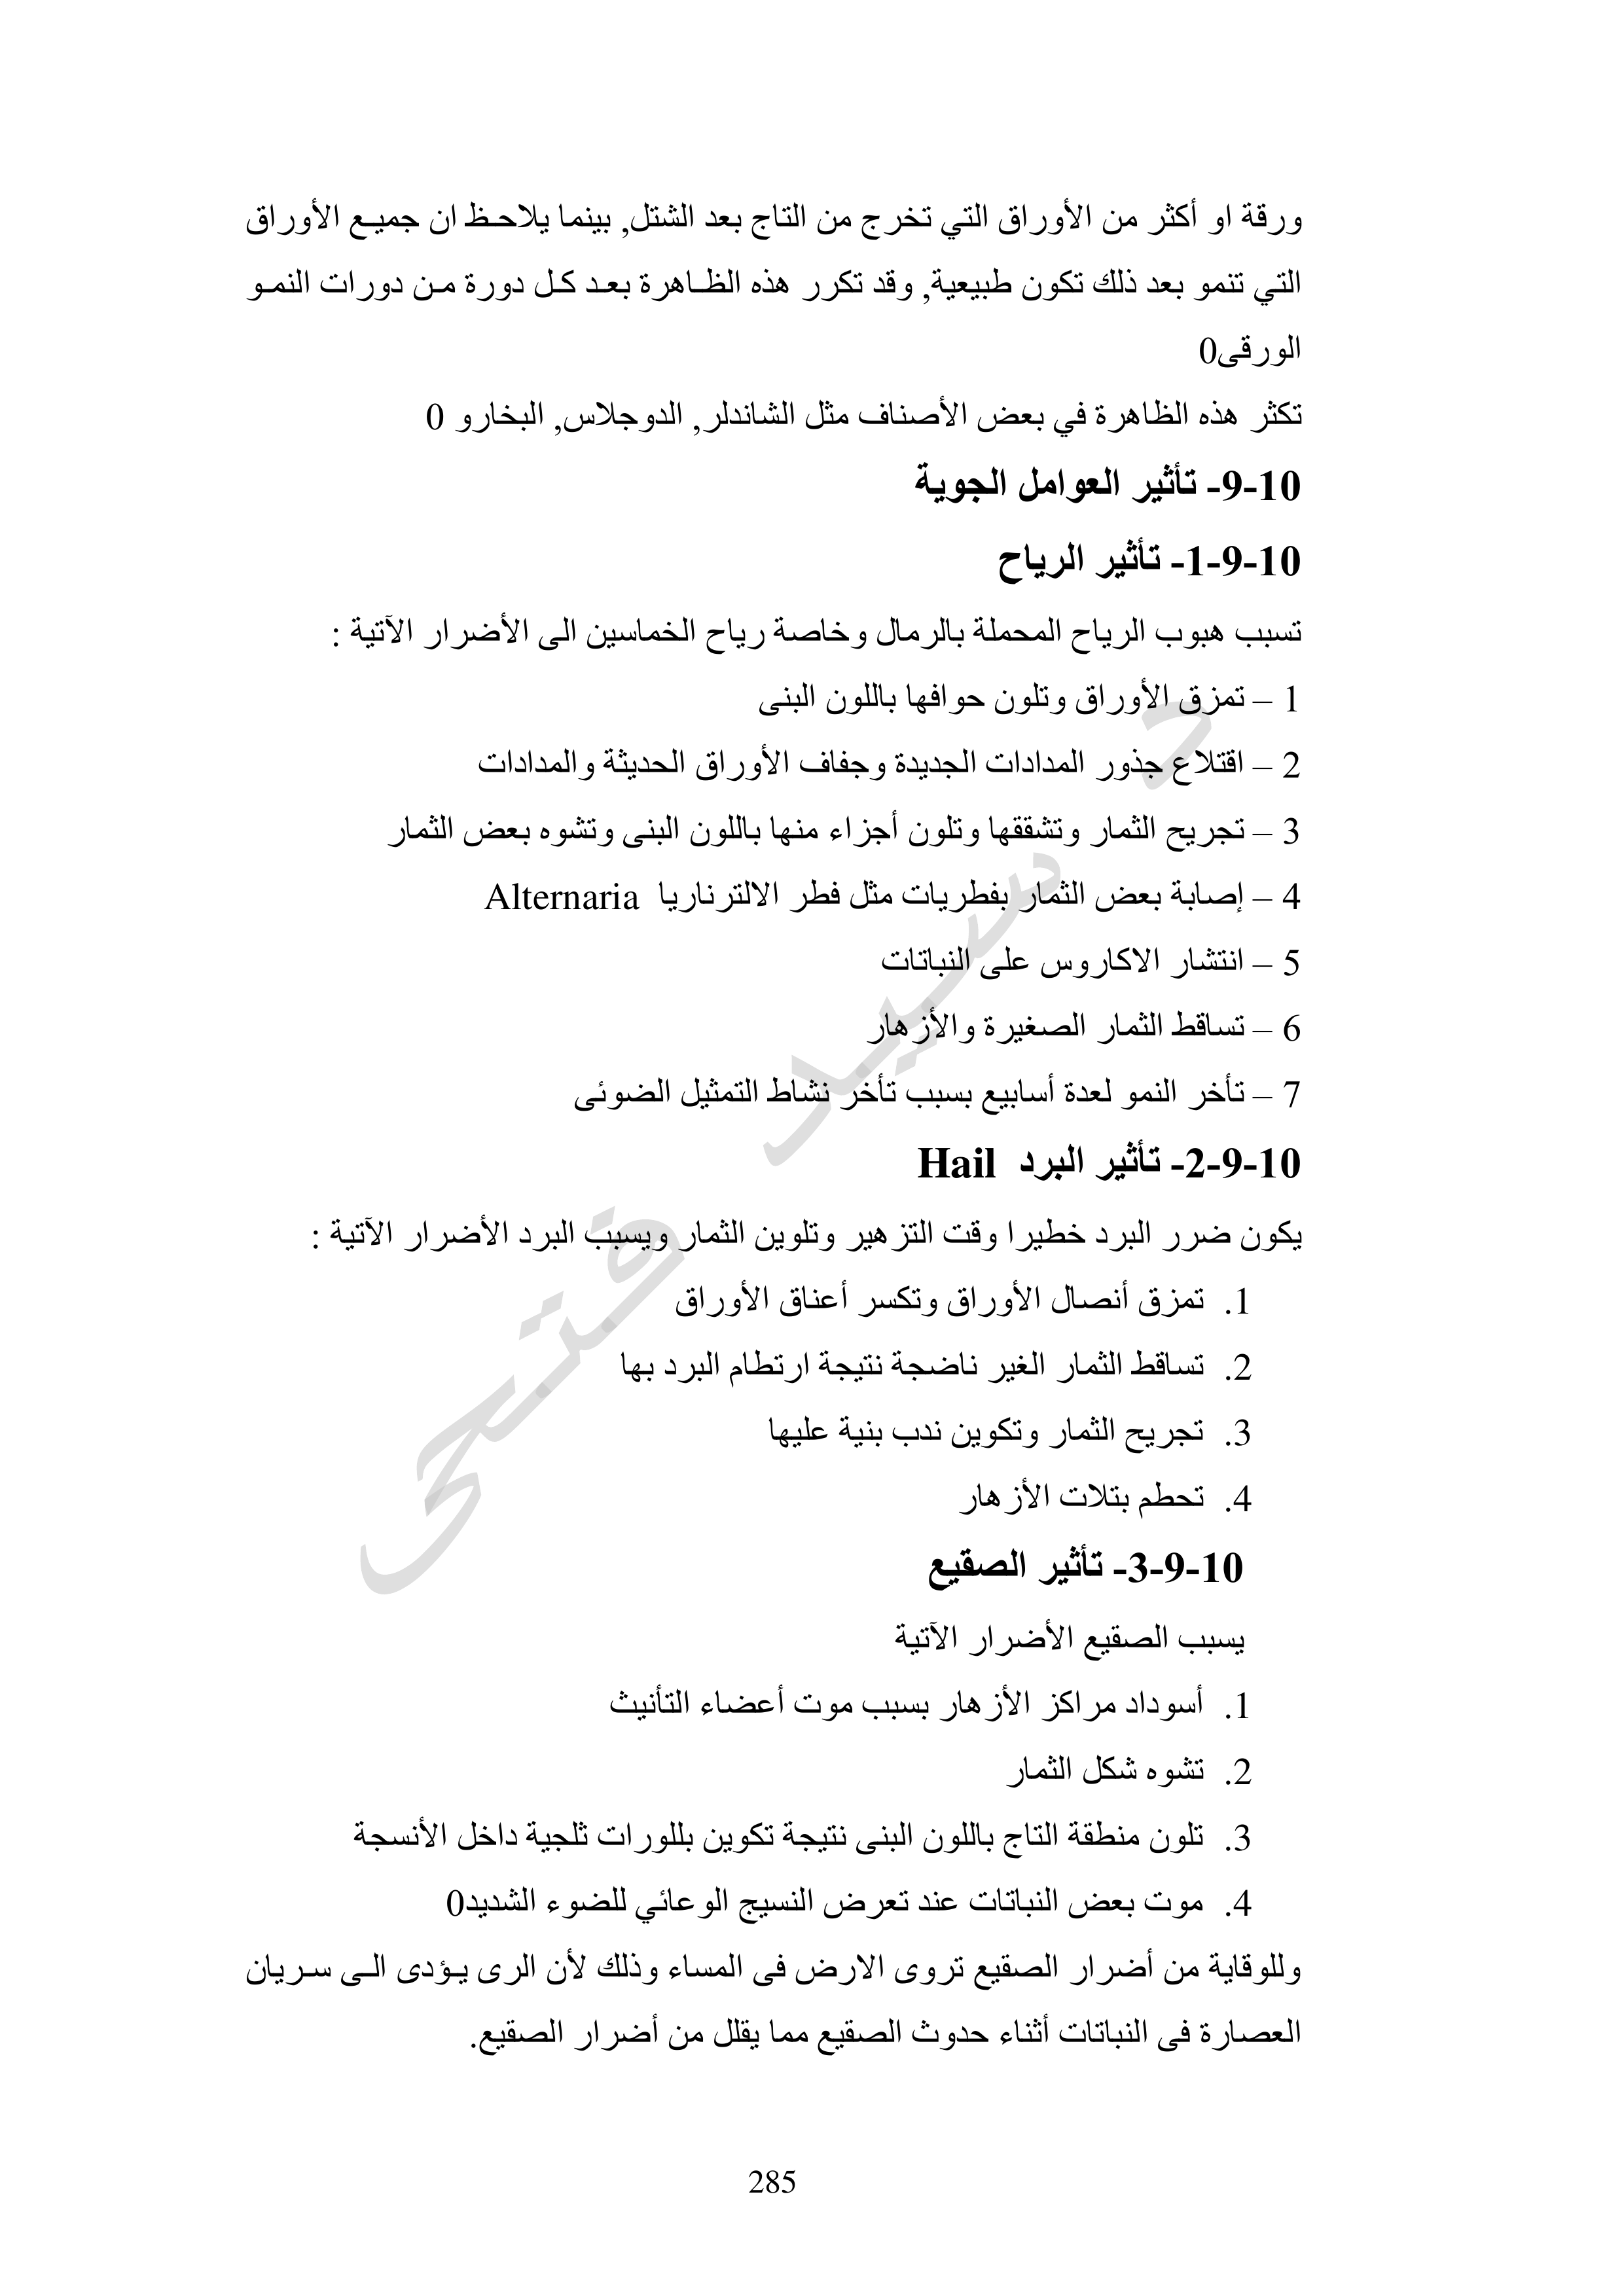 ورقة او أكثر من الأوراق التي تخرج من التاج بعد الشتل, بينما يلاحظ ان جميع الأوراق
التي تنمو بعد ذلك تكون طبيعية, وقد تكرر هذه الظاهرة بعد كل دورة من دورات النمو
الورقى0
تكثر هذه الظاهرة في بعض الأصناف مثل الشاندلر, الدوجلاس, البخارو 0
10-9- تأثير العوامل الجوية
10-9-1- تأثير الرياح
تسبب هبوب الرياح المحملة بالرمال وخاصة رياح الخماسين الى الأضرار الآتية :
1 – تمزق الأوراق وتلون حوافها باللون البنى
2 – اقتلاع جذور المدادات الجديدة وجفاف الأوراق الحديثة والمدادات
3 – تجريح الثمار وتشققها وتلون أجزاء منها باللون البنى وتشوه بعض الثمار
4 – إصابة بعض الثمار بفطريات مثل فطر الالترناريا Alternaria
5 – انتشار الاكاروس على النباتات
6 – تساقط الثمار الصغيرة والأزهار
7 – تأخر النمو لعدة أسابيع بسبب تأخر نشاط التمثيل الضوئى
10-9-2- تأثير البرد Hail
يكون ضرر البرد خطيرا وقت التزهير وتلوين الثمار ويسبب البرد الأضرار الآتية :
1. تمزق أنصال الأوراق وتكسر أعناق الأوراق
2. تساقط الثمار الغير ناضجة نتيجة ارتطام البرد بها
3. تجريح الثمار وتكوين ندب بنية عليها
4. تحطم بتلات الأزهار
10-9-3- تأثير الصقيع
يسبب الصقيع الأضرار الآتية
1. أسوداد مراكز الأزهار بسبب موت أعضاء التأنيث
2. تشوه شكل الثمار
3. تلون منطقة التاج باللون البنى نتيجة تكوين بللورات ثلجية داخل الأنسجة
4. موت بعض النباتات عند تعرض النسيج الوعائي للضوء الشديد0
وللوقاية من أضرار الصقيع تروى الارض فى المساء وذلك لأن الرى يؤدى الى سريان
العصارة فى النباتات أثناء حدوث الصقيع مما يقلل من أضرار الصقيع.
285
د سيد فتحى